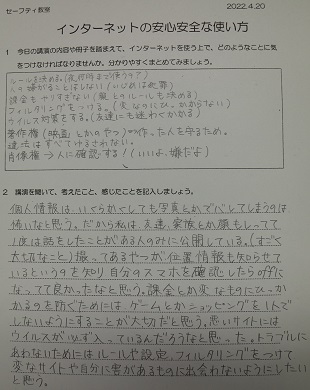 セーフティ教室
2022.4.20
インターネットの安心安全な使い方
1 今日の講演の内容や冊子を踏まえて、インターネットを使う上で、どのようなことに気
をつけなければなりませんか。分かりやすくまとめてみましょう。
ルールを決める。(夜何時まで使うか?)
人の嫌がることはしない(いじめは犯罪)
課金をやりすぎない(親とのルールも決める)
フィルタリングをつける。(変なのにひっかからない)
ウイルス対策をする。(友達にも迷わくかかる)
著作権(映画)とかのやつ
作った人を守るため。
違法はすべてけすされない。
肖像権→人に確認する!(いいよ、嫌だよ)
2 講演を聞いて、考えたこと、感じたことを記入しましょう。
個人情報は、いくらかくしても写真とかでバレてしまうのは
怖いなと思う。だから私は、友達、家族とか顔もしってて
1度は話をしたことがある人のみに公開している。(すごく
大切なこと)撮ってあるやつが位置情報も知らせて
いるというのを知り自分のスマホを確認したらOFFに
なってて良かったなと思う。課金とか変なものにひっか
かるのを防ぐためには、ゲームとかショッピングを1人で
しないようにすることが大切だと思う。悪いサイトには
ウイルスが必ず入っているんだろうなと思った。トラブルに
あわないためにはルールや設定、フィルタリングをつけて
変なサイトや自分に害があるものに出会わないようにしたい
と思う。